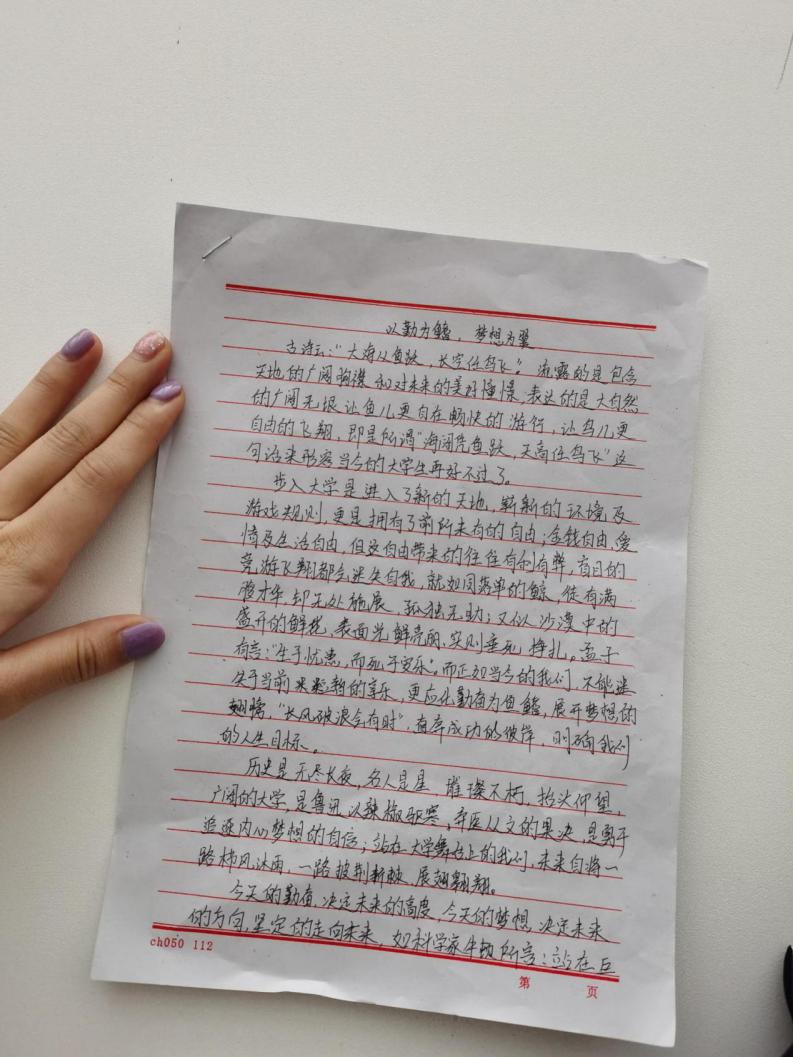 以勤为鳍,梦想为翼
古诗云:"大海从鱼跃,长空任鸟飞"。流露的是包含
天地的广阔胸襟和对未来的美好憧憬,表达的是大自然
的广阔无垠让鱼儿更自在畅快的游行,让鸟儿更
自由的飞翔,即是所谓"海阔凭鱼跃,天高任鸟飞"这
句话来形容当今的大学生再好不过了。
步入大学是进入了新的天地,崭新的环境及
游戏规则,更是拥有了前所未有的自由;金钱自由、爱
情及生活自由,但这自由带来的往往有利有弊,盲目的
游飞翔都会迷失自我,就如同落单的鲸,徒有满
腹才华,却无处施展,孤独无助;又似沙漠中的
盛开的鲜花,表面光鲜亮丽,实则垂死挣扎。孟子
有言:"生于忧患,而死于安乐"。而正如当今的我们,不能迷
失于当前新的享乐,更应化勤奋为鱼鳍,展开梦想的
翅膀,"长风破浪会有时",直奔成功的彼岸,明确我们
的人生目标。
历史是无尽长夜,名人是星,璀璨不朽,抬头仰望,
广阔的大学,是鲁迅以辣椒驱寒,弃医从文的果决,是勇于
追逐内心梦想的自信;站在大学舞台上的我们,未来自将一
路栉风沐雨,一路披荆斩棘,展翅翱翔。
今天的勤奋,决定未来的高度,今天的梦想,决定未来
的方向,坚定的走向未来,如科学家牛顿所言:站在巨
ch050 112
第 页